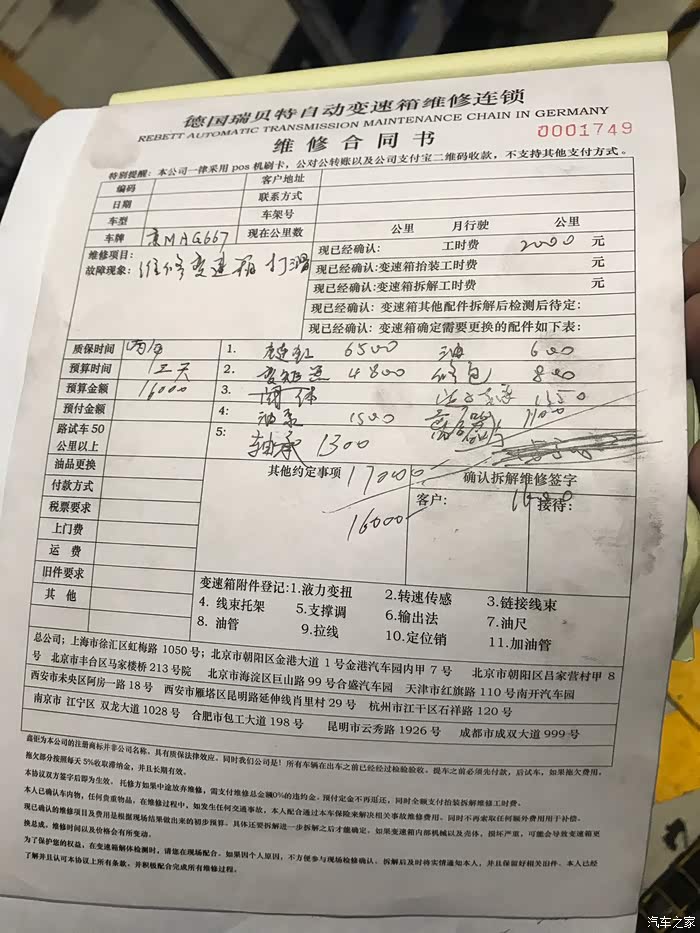 德国瑞贝特自动变速箱维修连锁
REBETT AUTOMATIC TRANSMISSION MAINTENANCE CHAIN IN GERMANY
维修合同书
0001749
特别提醒：本公司一律采用 pos 机刷卡，公对公转账以及公司支付宝二维码收款，不支持其他支付方式。
编码 客户地址
日期 联系方式
车型 车架号
车牌 京MAG667 现在公里数 公里 月行驶 公里
维修项目： 现已经确认： 工时费 2000 元
故障现象：维修变速箱 打滑 现已经确认：变速箱抬装工时费 元
现已经确认：变速箱拆解工时费 元
现已经确认：变速箱其他配件拆解后检测后待定：
现已经确认：变速箱确定需要更换的配件如下表：
质保时间 两年 1. 6500 油 600
预算时间 三天 2. 4800 修包 800
预算金额 16000 3. 阀体 1350
预付金额 4: 油泵 1500 1100
路试车50公里以上 5: 轴承 1300
油品更换 其他约定事项 17000 确认拆解维修签字
付款方式 客户： 接待：
税票要求 16000
上门费
运 费
旧件要求
其 他
变速箱附件登记：1.液力变扭 2.转速传感 3.链接线束
4. 线束托架 5.支撑调 6.输出法 7.油尺
8. 油管 9.拉线 10.定位销 11.加油管
总公司：上海市徐汇区虹梅路 1050 号；北京市朝阳区金港大道 1 号金港汽车园内甲 7 号 北京市朝阳区吕家营村甲 8
号 北京市丰台区马家楼桥 213 号院 北京市海淀区巨山路 99 号合盛汽车园 天津市红旗路 110 号南开汽车园
西安市未央区阿房一路 18 号 西安市雁塔区昆明路延伸线肖里村 29 号 杭州市江干区石祥路 120 号
南京市 江宁区 双龙大道 1028 号 合肥市包工大道 198 号 昆明市云秀路 1926 号 成都市成双大道 999 号
鑫钜为本公司的注册商标并非公司名称，具有质保法律效应。同时我们公是！所有车辆在出车之前已经经过检验验收。提车之前必须先付款，后试车，如果拖欠费用，
拖欠部分按照每天 5%收取滞纳金，并且长期有效。
本协议双方签字后即为生效。托修方如果中途放弃维修，需支付维修总金额0%的违约金。预付定金不再退还，同时全额支付抬装拆解维修工时费。
本人已确认车内物，任何贵重物品，在维修过程中，如发生任何交通事故，本人配合通过本车保险来解决相关事故维修费用。同时不再索取任何额外费用用于补偿。
现已确认的维修项目及费用是根据现场结果做出来的初步预算。具体还要拆解进一步拆解之后才能确定。如果变速箱内部机械以及壳体，损坏严重，可能会导致变速箱更
换总成，维修时间以及价格会有所变动。
为了保护您的权益，在变速箱解体检测时，请您在现场配合。如果因个人原因，不方便参与现场检修确认。拆解后及时将实情通知本人，并且保留好相关旧件。本人已经
了解并且认可本协议上所有条款。并积极配合完成所有维修过程。
汽车之家